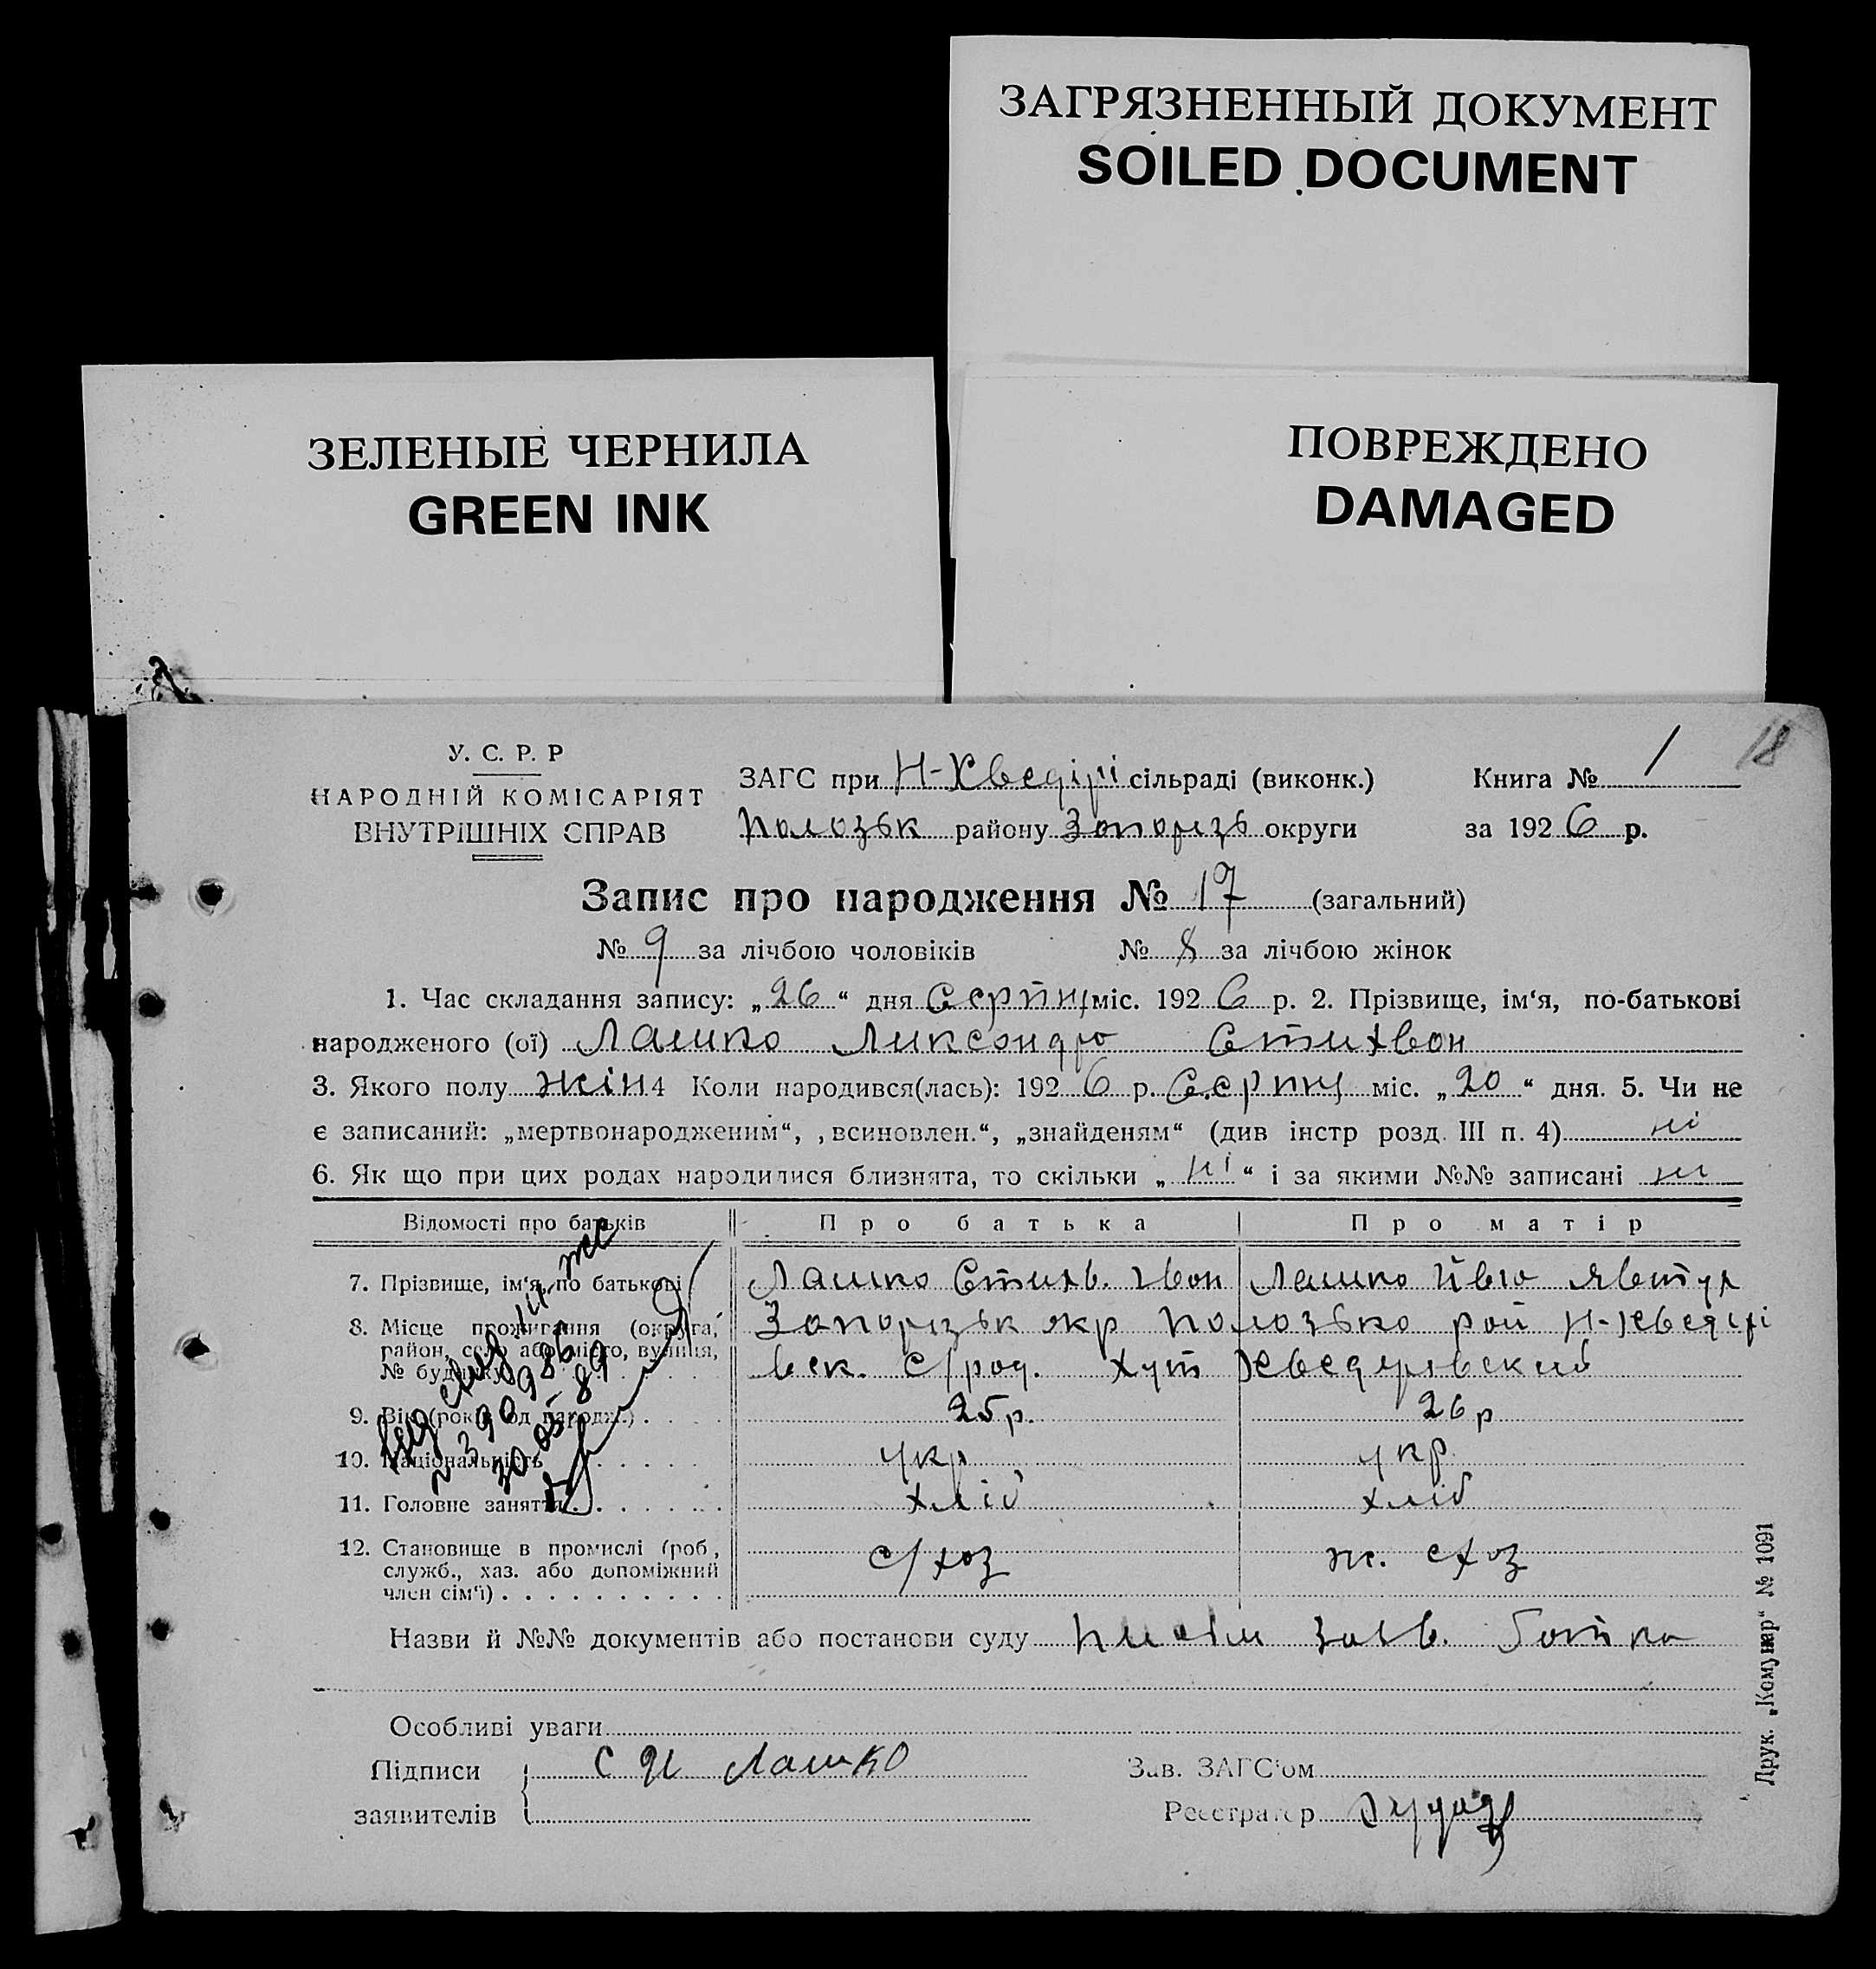 ЗАГРЯЗНЕННЫЙ ДОКУМЕНТ
SOILED DOCUMENT
ЗЕЛЕНЫЕ ЧЕРНИЛА
GREEN INK
ПОВРЕЖДЕНО
DAMAGED
18
У. С. Р. Р
НАРОДНІЙ КОМІСАРІЯТ
ВНУТРІШНІХ СПРАВ
ЗАГС при Н-Хведірі сільраді (виконк.) Книга № 1
Полозьк району Запорізь округи за 1926 р.
Запис про народження № 17 (загальний)
№ 9 за лічбою чоловіків № 8 за лічбою жінок
1. Час складання запису: „26“ дня Серпня міс. 1926 р. 2. Прізвище, ім‘я, по-батькові
народженого (ої) Лашко Ликсондро Стихвон
3. Якого полу жін 4 Коли народився(лась): 1926 р. Серпня міс. „20“ дня. 5. Чи не
є записаний: „мертвонародженим“, „всиновлен.“, „знайденям“ (див інстр розд. III п. 4) ні
6. Як що при цих родах народилися близнята, то скільки „ні“ і за якими №№ записані ні
Відомості про батьків Про батька Про матір
7. Прізвище, ім‘я, по батькові Лашко Стихв. Івон Лашко
8. Місце проживання (округа, район, село або місто, вулиця, № будинку) Запорізьк окр Полозько рай Н-Хведірі
вск. с/род. Хут Хведировский
9. Вік (років од народж.) 25 р. 26 р
10. Національність укр укр.
11. Головне заняття хліб хліб
12. Становище в промислі (роб., служб., хаз. або допоміжний член сім‘ї) с/хоз ж. схоз
30 05 89
Назви й №№ документів або постанови суду заяв. батька
Особливі уваги
Підписи С И Лашко Зав. ЗАГС‘ом
заявителів Реєстратор
Друк. „Комунар“ № 1091